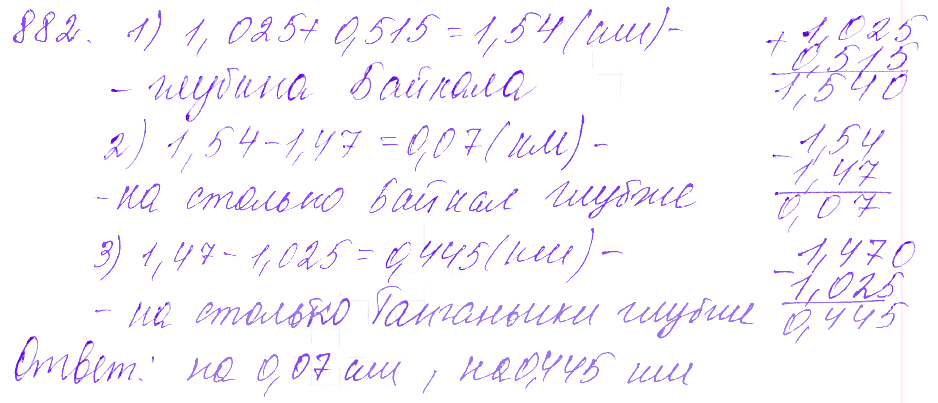 882. 1) 1,025+0,515=1,54(км)-
- глубина Байкала
2) 1,54-1,47=0,07(км)-
- на столько Байкал глубже
3) 1,47-1,025=0,445(км)-
- на столько Танганьики глубже
Ответ: на 0,07 км, на 0,445 км
+ 1,025
0,515
1,540
- 1,54
1,47
0,07
- 1,470
1,025
0,445